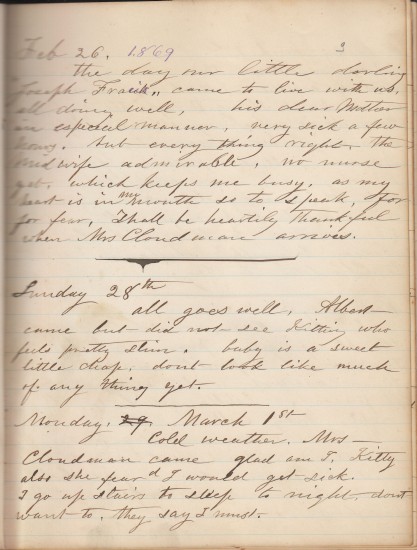 Feb 26. 1869 3
the day our little darling
Joseph Frank,, came to live with us,
all doing well, his dear Mother
in especial manner, very sick a few
hours. but every thing right, the
midwife admirable, no nurse
yet, which keeps me busy, as my
heart is in my mouth so to speak, for
for fear, I shall be heartily thankful
when Mrs Cloudman arrives.
Sunday 28th
all goes well, Albert
came but did not see Kitty who
feels pretty slim. baby is a sweet
little chap, dont look like much
of any thing yet.
Monday, 29 March 1st
Cold weather. Mrs
Cloudman came glad am I, Kitty
also she fear'd I would get sick.
I go up stairs to sleep to night, dont
want to, they say I must.